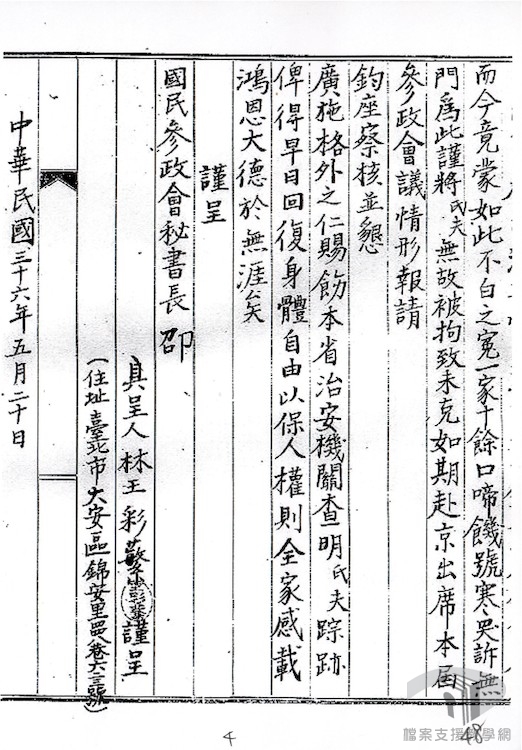 而今竟蒙如此不白之冤一家十餘口啼饑號寒哭訴無
門為此謹將氏夫無故被拘致未克如期赴京出席本屆
參政會議情形報請
鈞座察核並懇
廣施格外之仁賜飭本省治安機關查明氏夫踪跡
俾得早日回復身體自由以保人權則全家感載
鴻恩大德於無涯矣
謹呈
國民參政會秘書長 邵
具呈人林王彩蘩謹呈
(住址臺北市大安區錦安里四巷六三號)
中華民國三十六年五月二十日
4
48
檔案支援教學網